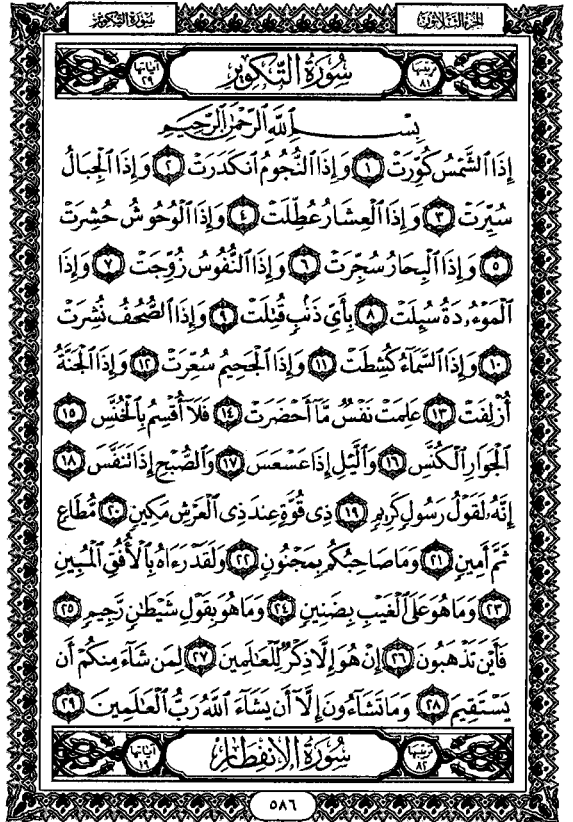 سُورَةُ التَّكْوِيرِ الجُزْءُ الثَّلَاثُونَ
آيَاتُهَا ٢٩ سُورَةُ التَّكْوِيرِ تَرْتِيبُهَا ٨١
بِسْمِ ٱللَّهِ ٱلرَّحْمَٰنِ ٱلرَّحِيمِ
إِذَا ٱلشَّمْسُ كُوِّرَتْ ١ وَإِذَا ٱلنُّجُومُ ٱنكَدَرَتْ ٢ وَإِذَا ٱلْجِبَالُ
سُيِّرَتْ ٣ وَإِذَا ٱلْعِشَارُ عُطِّلَتْ ٤ وَإِذَا ٱلْوُحُوشُ حُشِرَتْ
٥ وَإِذَا ٱلْبِحَارُ سُجِّرَتْ ٦ وَإِذَا ٱلنُّفُوسُ زُوِّجَتْ ٧ وَإِذَا
ٱلْمَوْءُۥدَةُ سُئِلَتْ ٨ بِأَىِّ ذَنۢبٍ قُتِلَتْ ٩ وَإِذَا ٱلصُّحُفُ نُشِرَتْ
١٠ وَإِذَا ٱلسَّمَآءُ كُشِطَتْ ١١ وَإِذَا ٱلْجَحِيمُ سُعِّرَتْ ١٢ وَإِذَا ٱلْجَنَّةُ
أُزْلِفَتْ ١٣ عَلِمَتْ نَفْسٌ مَّآ أَحْضَرَتْ ١٤ فَلَآ أُقْسِمُ بِٱلْخُنَّسِ ١٥
ٱلْجَوَارِ ٱلْكُنَّسِ ١٦ وَٱلَّيْلِ إِذَا عَسْعَسَ ١٧ وَٱلصُّبْحِ إِذَا تَنَفَّسَ ١٨
إِنَّهُۥ لَقَوْلُ رَسُولٍ كَرِيمٍ ١٩ ذِى قُوَّةٍ عِندَ ذِى ٱلْعَرْشِ مَكِينٍ ٢٠ مُّطَاعٍ
ثَمَّ أَمِينٍ ٢١ وَمَا صَاحِبُكُم بِمَجْنُونٍ ٢٢ وَلَقَدْ رَءَاهُ بِٱلْأُفُقِ ٱلْمُبِينِ
٢٣ وَمَا هُوَ عَلَى ٱلْغَيْبِ بِضَنِينٍ ٢٤ وَمَا هُوَ بِقَوْلِ شَيْطَٰنٍ رَّجِيمٍ ٢٥
فَأَيْنَ تَذْهَبُونَ ٢٦ إِنْ هُوَ إِلَّا ذِكْرٌ لِّلْعَٰلَمِينَ ٢٧ لِمَن شَآءَ مِنكُمْ أَن
يَسْتَقِيمَ ٢٨ وَمَا تَشَآءُونَ إِلَّآ أَن يَشَآءَ ٱللَّهُ رَبُّ ٱلْعَٰلَمِينَ ٢٩
آيَاتُهَا ١٩ سُورَةُ الِانْفِطَارِ تَرْتِيبُهَا ٨٢
٥٨٦